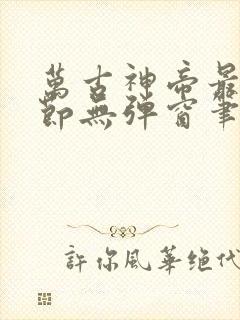 萬古神帝最
節無彈窗筆
許你風華絕代